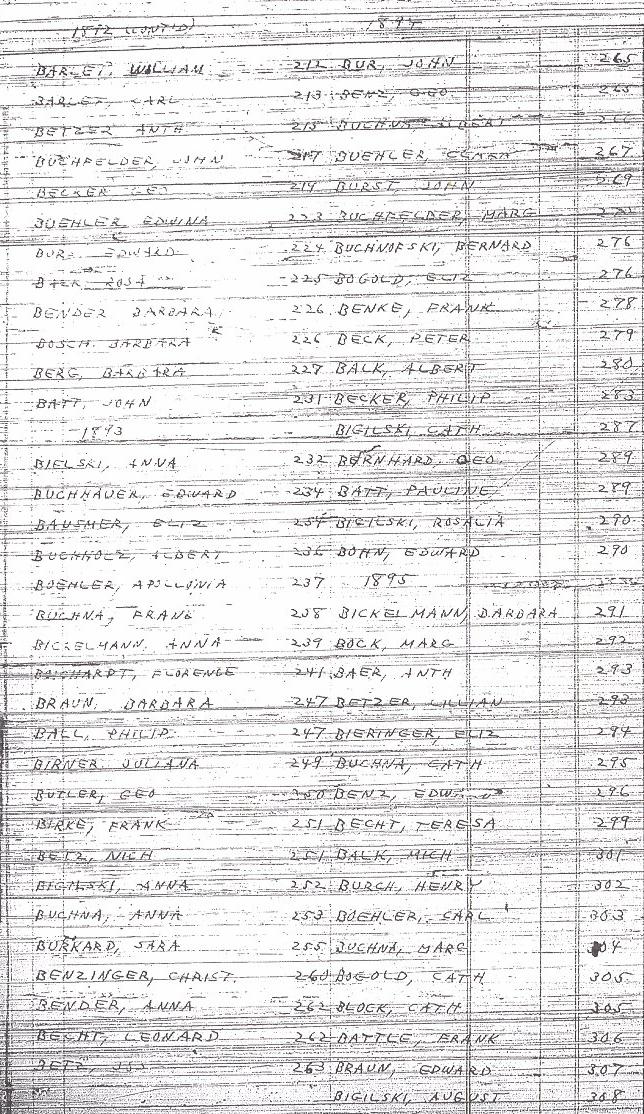 1892 (CONT'D) 1894
BARLET, WILLIAM 212 BUR, JOHN 265
BARLET, CARL 213 BENZ, GEO 265
BETZER ANTH 215 BUCHNA, ALBERT
BUCHFELDER, JOHN 217 BUEHLER, CLARA 267
BECKER GEO 219 BURST, JOHN 269
BUEHLER EDWINA 223 BUCHFELDER, MARG
BUR, EDWARD 224 BUCHNOFSKI, BERNARD 276
BAER, ROSA 225 BOGOLD, ELIZ 276
BENDER BARBARA 226 BENKE, FRANK 278
BOSCH BARBARA 226 BECK, PETER 279
BERG, BARBARA 227 BALK, ALBERT 280
BATT, JOHN 231 BECKER, PHILIP 283
1893 BIGILSKI, CATH 287
BIELSKI, ANNA 232 BERNHARD, GEO 289
BUCHHAUER, EDWARD 234 BATT, PAULINE 289
BAUSMER, ELIZ 234 BIGILSKI, ROSALIA 290
BUCHHOLZ, ALBERT 236 BOHN, EDWARD 290
BOEHLER, APOLLONIA 237 1895
BUCHNA, FRANK 238 BICKELMANN, BARBARA 291
BICKELMANN, ANNA 239 BOCK, MARG 292
FLORENCE 241 BAER, ANTH 293
BRAUN, BARBARA 247 BETZER, LILLIAN 293
BALL, PHILIP 247 BIERINGER, ELIZ 294
BIRNER, JULIANA 249 BUCHNA, CATH 295
BUTLER, GEO 250 BENZ, EDW. 296
BIRKE, FRANK 251 BECHT, TERESA 299
BETZ, NICH 251 BALK, MICH 301
BIGILSKI, ANNA 252 BURCH, HENRY 302
BUCHNA, ANNA 253 BOEHLER, CARL 303
BURKARD, SARA 255 BUCHNA, MARG 304
BENZINGER, CHRIST. 260 BOGOLD, CATH 305
BENDER, ANNA 262 BLOCK, CATH 305
BECHT, LEONARD 262 BATTLE, FRANK 306
BETZ, JOS 263 BRAUN, EDWARD 307
BIGILSKI, AUGUST 308